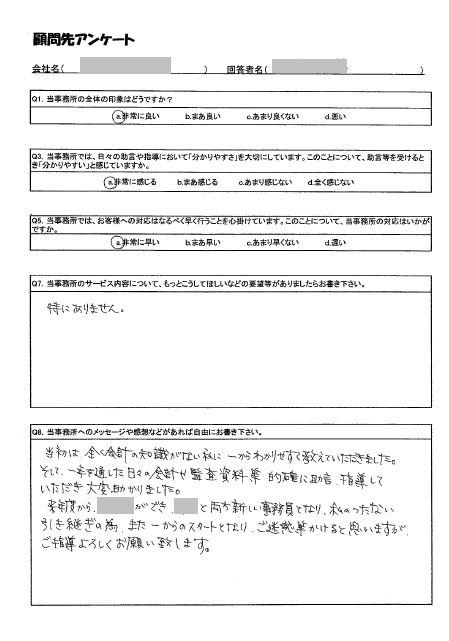 顧問先アンケート
会社名( ) 回答者名( )
Q1. 当事務所の全体の印象はどうですか？
a.非常に良い b.まあ良い c.あまり良くない d.悪い
Q3. 当事務所では、日々の助言や指導において「分かりやすさ」を大切にしています。このことについて、助言等を受けるとき「分かりやすい」と感じていますか。
a.非常に感じる b.まあ感じる c.あまり感じない d.全く感じない
Q5. 当事務所では、お客様への対応はなるべく早く行うことを心掛けています。このことについて、当事務所の対応はいかがですか。
a.非常に早い b.まあ早い c.あまり早くない d.遅い
Q7. 当事務所のサービス内容について、もっとこうしてほしいなどの要望等がありましたらお書き下さい。
特にありません。
Q8. 当事務所へのメッセージや感想などがあれば自由にお書き下さい。
当初は、全く会計の知識がない私に一からわかりやすく教えていただきました。
そして、一年を通した日々の会計や監査資料等 的確に助言、指導して
いただき大変助かりました。
来年度から、 ができ と両方新しい事務員となり、私のつたない
引き継ぎの為、また一からのスタートとなり、ご迷惑等かけると思いますが、
ご指導よろしくお願い致します。